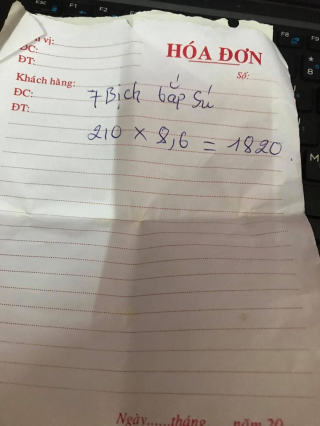 vị:
HÓA ĐƠN
ĐC:
ĐT:
Số:
Khách hàng:
ĐC:
ĐT:
7 Bịch bắp Sú
210 × 8,6 = 1820.
Ngày......tháng năm 20